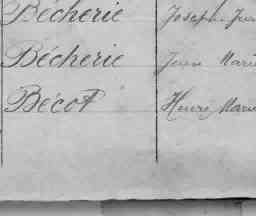 Bécherie Joseph
Bécherie Jean Marie
Bécot Henri Marie